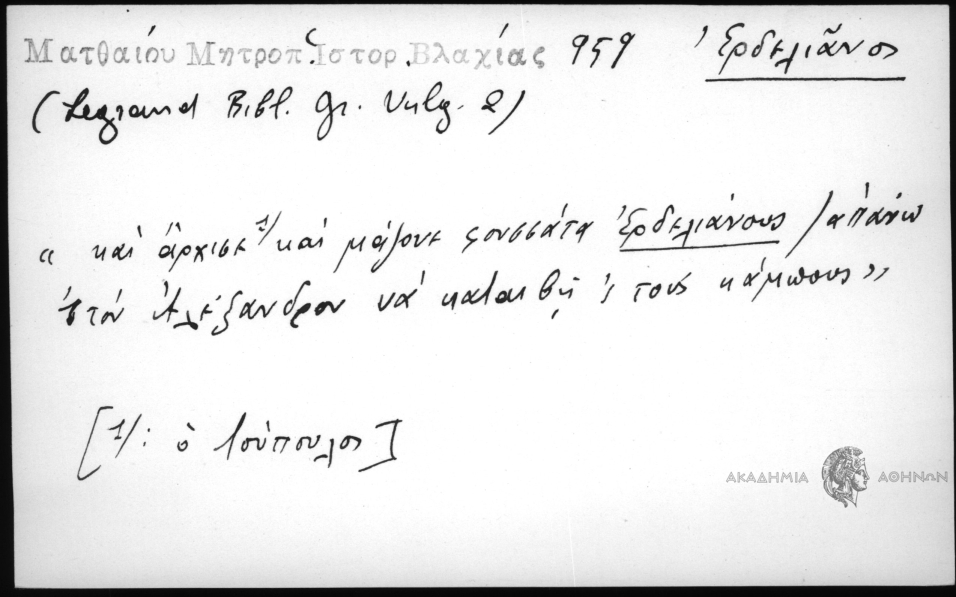 Ματθαίου Μητροπ. Ἱστορ. Βλαχίας 959 Ἐρδελιᾶνος
(Legrand Bibl. Gr. Vulg. 2)
« καὶ ἄρχισε 1/ καὶ μάζονε φουσσάτα Ἐρδελιάνους / ἀπάνω
'ς τὸν Ἀλέξανδρον νὰ καταιβῇ 'ς τοὺς κάμπους »
[1/: ὁ Λούπουλος]
ΑΚΑΔΗΜΙΑ ΑΘΗΝΩΝ